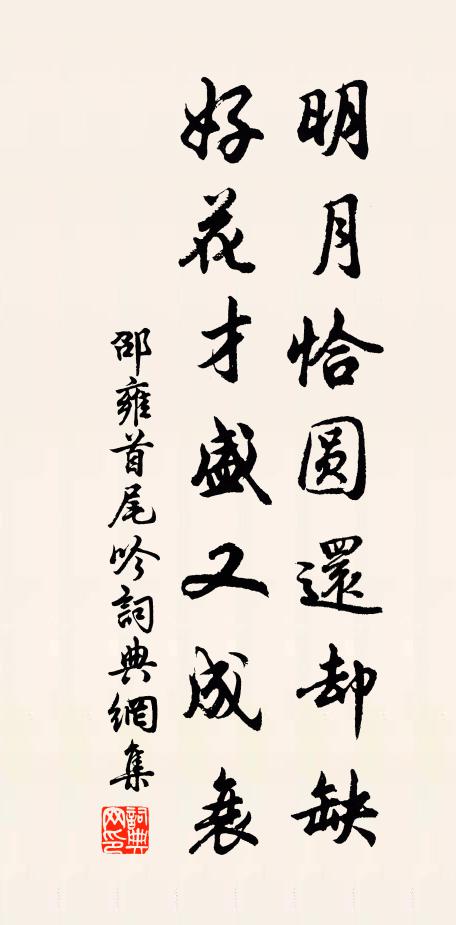 明月恰圆還却缺
好花才盛又成衰
邵雍首尾吟詞典網集
詞典网印